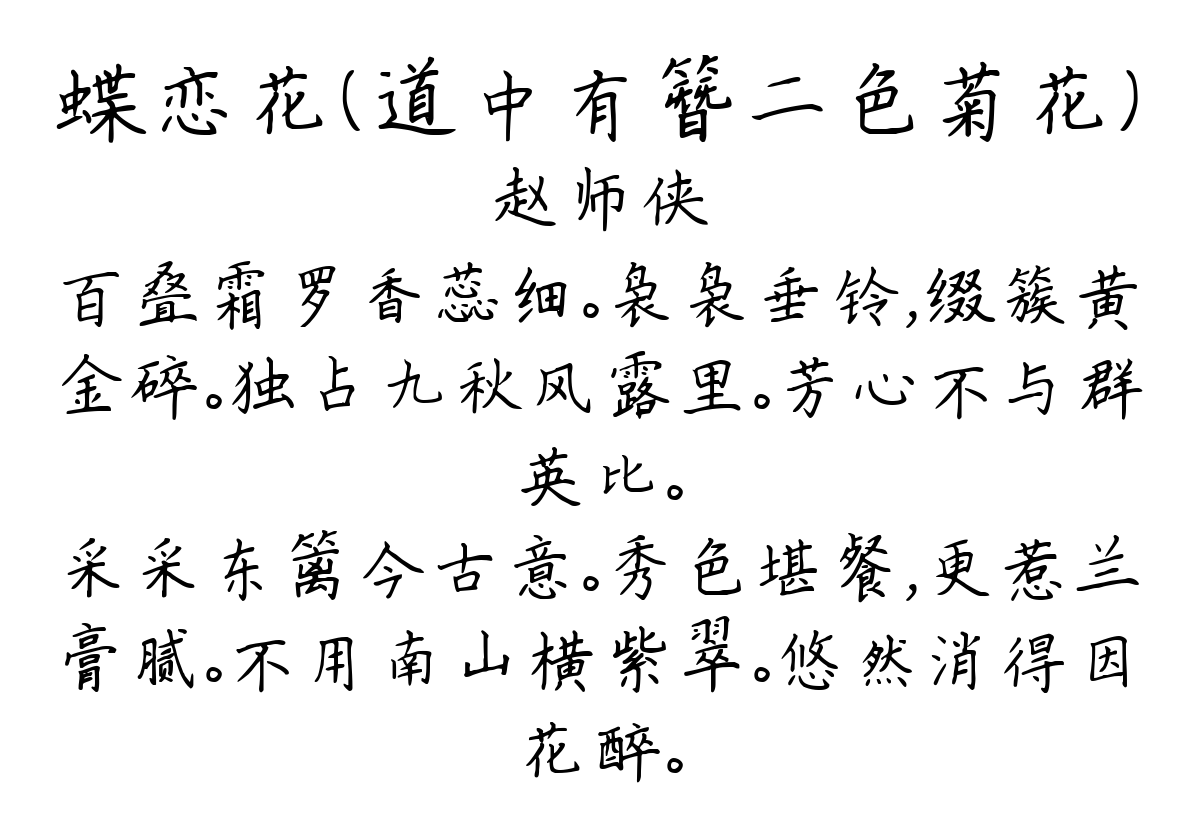 蝶恋花(道中有簪二色菊花)
赵师侠
百叠霜罗香蕊细。袅袅垂铃,缀簇黄
金碎。独占九秋风露里。芳心不与群
英比。
采采东篱今古意。秀色堪餐,更惹兰
膏腻。不用南山横紫翠。悠然消得因
花醉。